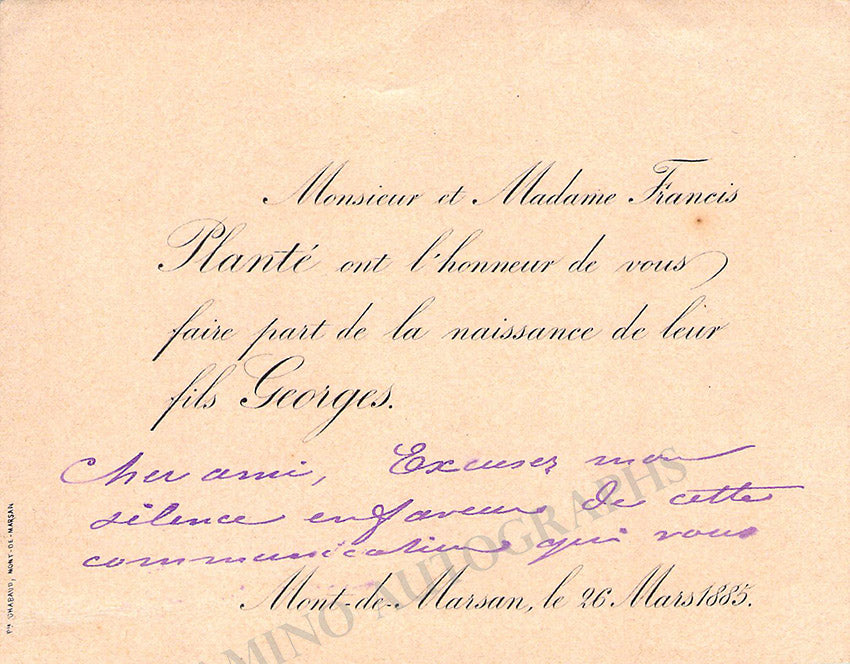 Monsieur et Madame Francis
Planté ont l'honneur de vous
faire part de la naissance de leur
fils Georges.
Cher ami, Excusez mon
silence en faveur de cette
communication qui vous
Mont-de-Marsan, le 26 Mars 1885.
PH. CHABAUD, MONT-DE-MARSAN
AMINO AUTOGRAPHS